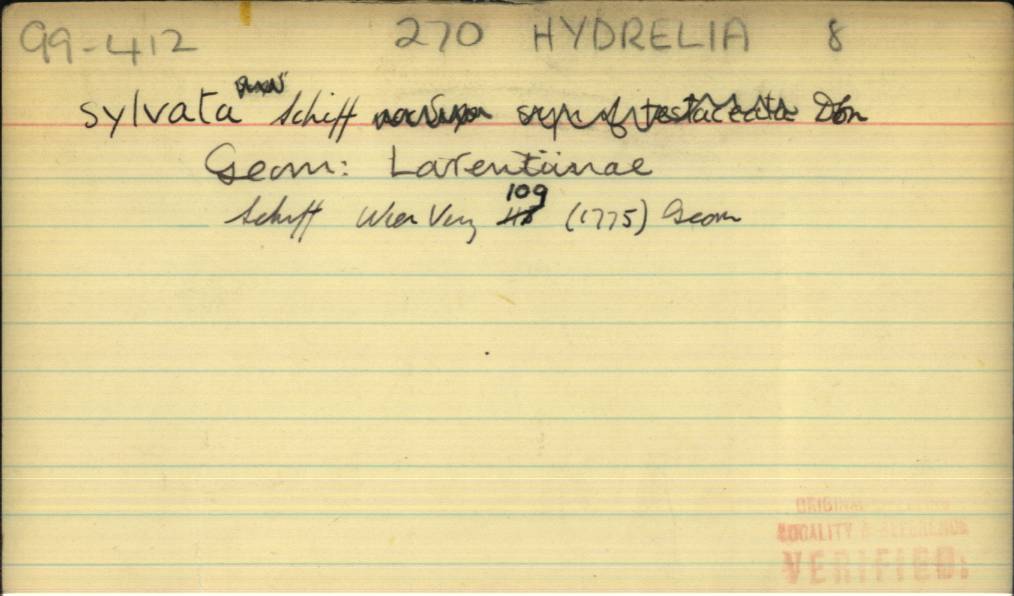 99-412 270 HYDRELIA 8
sylvata Schiff syn of testaceata Don
Geom: Larentiinae
Schiff Wien Verz 109 (1775) Geom
ORIGINAL
LOCALITY & REFERENCE
VERIFIED: